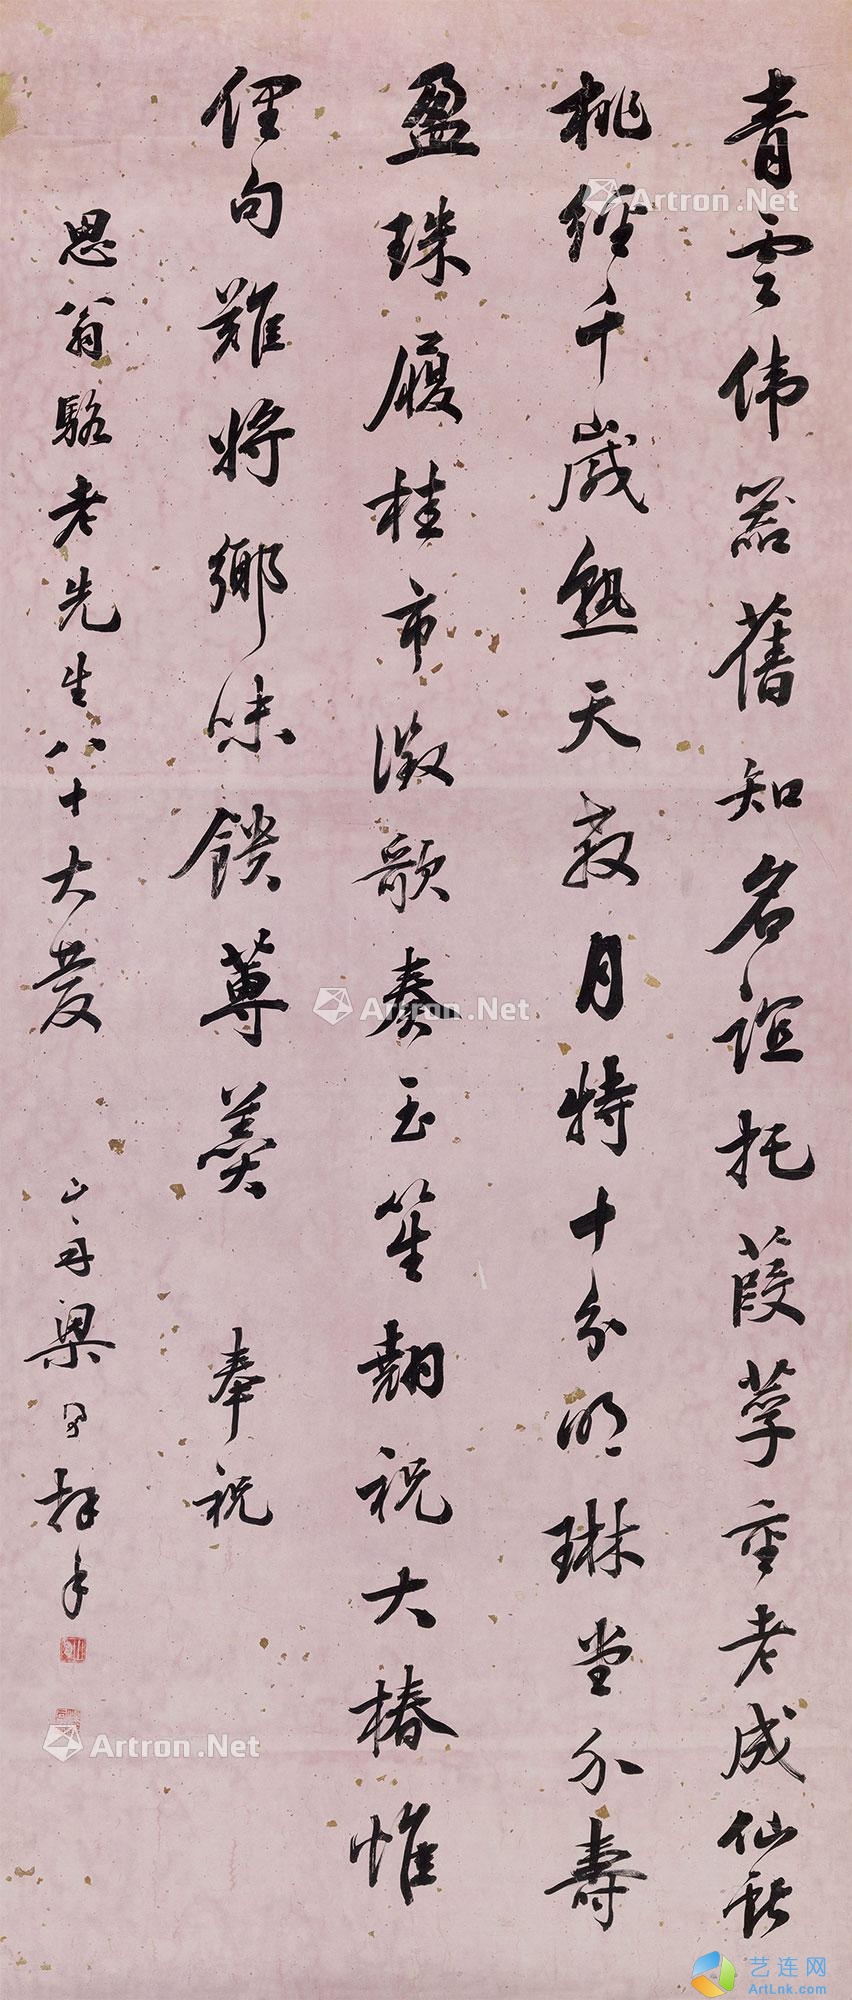 青雲偉器舊知名誼托葭莩重老成仙獻
桃經千歲熟天教月特十分明琳堂介壽
盈珠履桂市徵歌奏玉笙翹祝大椿惟
俚句難將鄉味饋蓴羹 奉祝
思翁駱老先生八十大慶
山舟梁同書拜手
Artron.Net
Artron.Net
Artron.Net
艺连网
ArtLnk.com